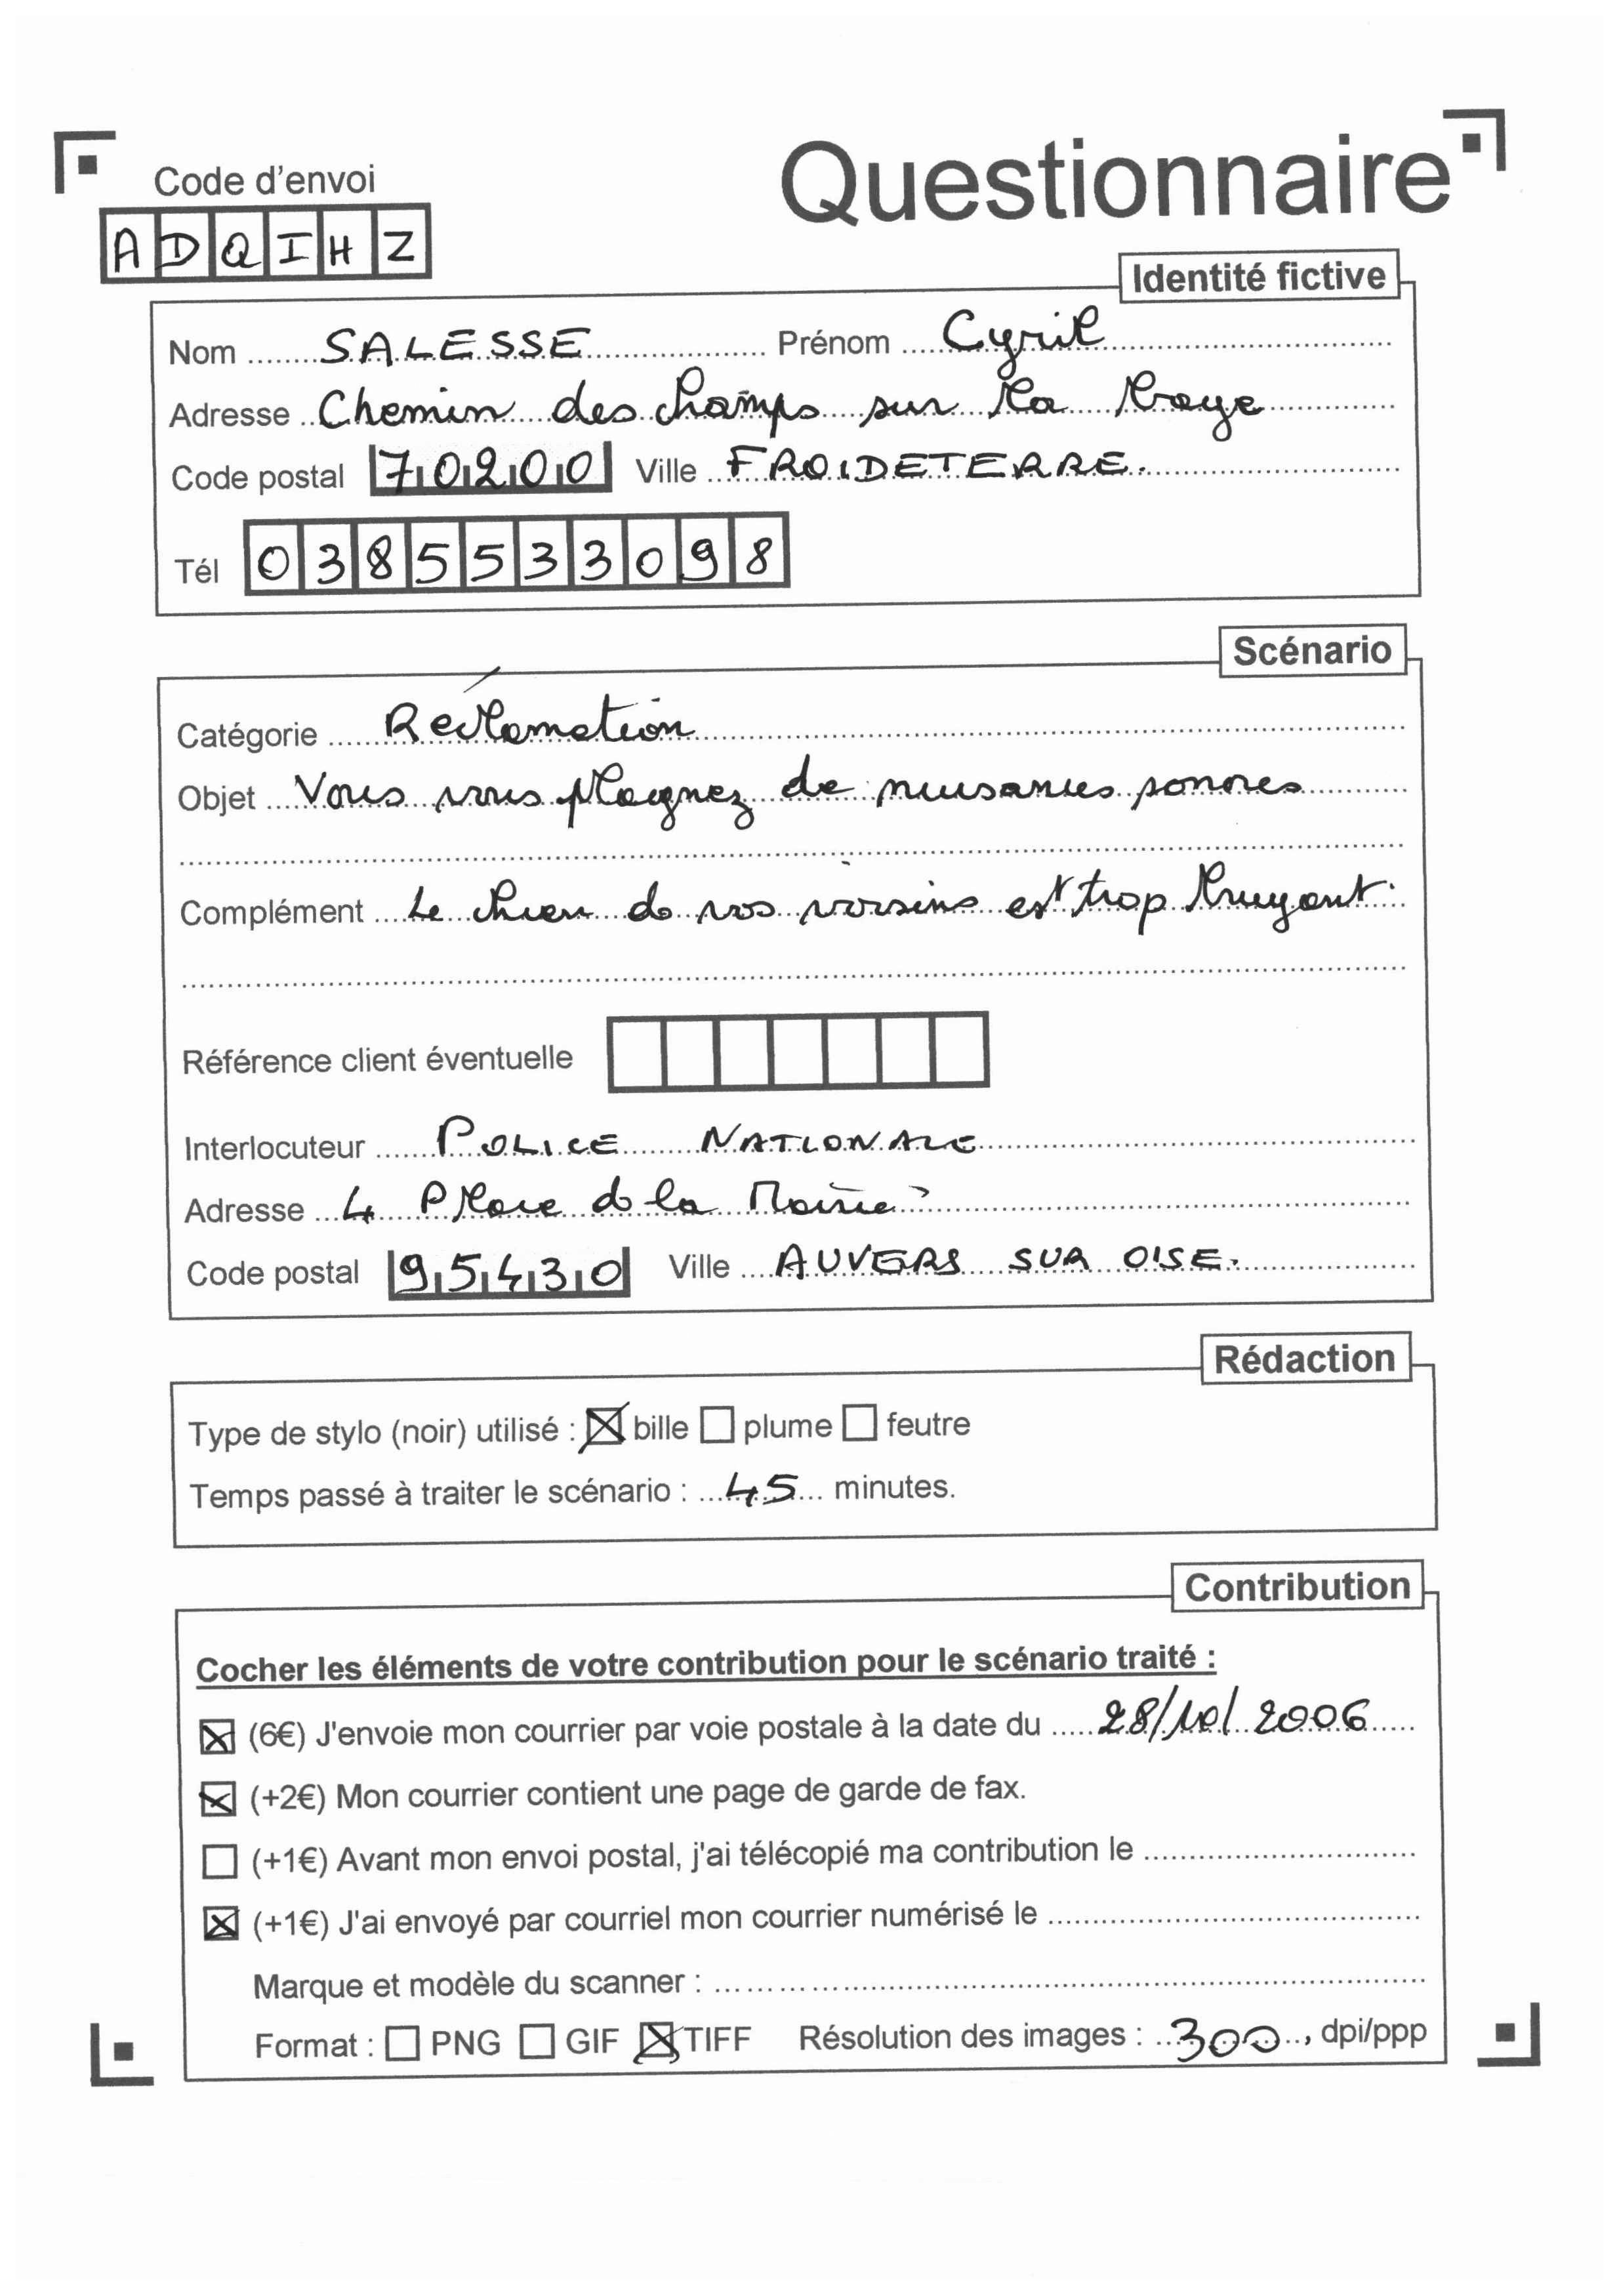 Questionnaire
Code d'envoi
ADQIHZ
Identité fictive
Nom SALESSE Prénom Cyril
Adresse Chemin des champs sur la Voye
Code postal 70200 Ville FROIDETERRE.
Tél 0385533098
Scénario
Catégorie Réclamation
Objet Vous vous plaignez de nuisances sonores
Complément Le chien de vos voisins est trop bruyant.
Référence client éventuelle
Interlocuteur POLICE NATIONALE
Adresse 4 Place de la Mairie
Code postal 95430 Ville AUVERS SUR OISE.
Rédaction
Type de stylo (noir) utilisé : bille plume feutre
Temps passé à traiter le scénario : 45 minutes.
Contribution
Cocher les éléments de votre contribution pour le scénario traité :
(6€) J'envoie mon courrier par voie postale à la date du 28/10/2006
(+2€) Mon courrier contient une page de garde de fax.
(+1€) Avant mon envoi postal, j'ai télécopié ma contribution le
(+1€) J'ai envoyé par courriel mon courrier numérisé le
Marque et modèle du scanner :
Format : PNG GIF TIFF Résolution des images : 300, dpi/ppp